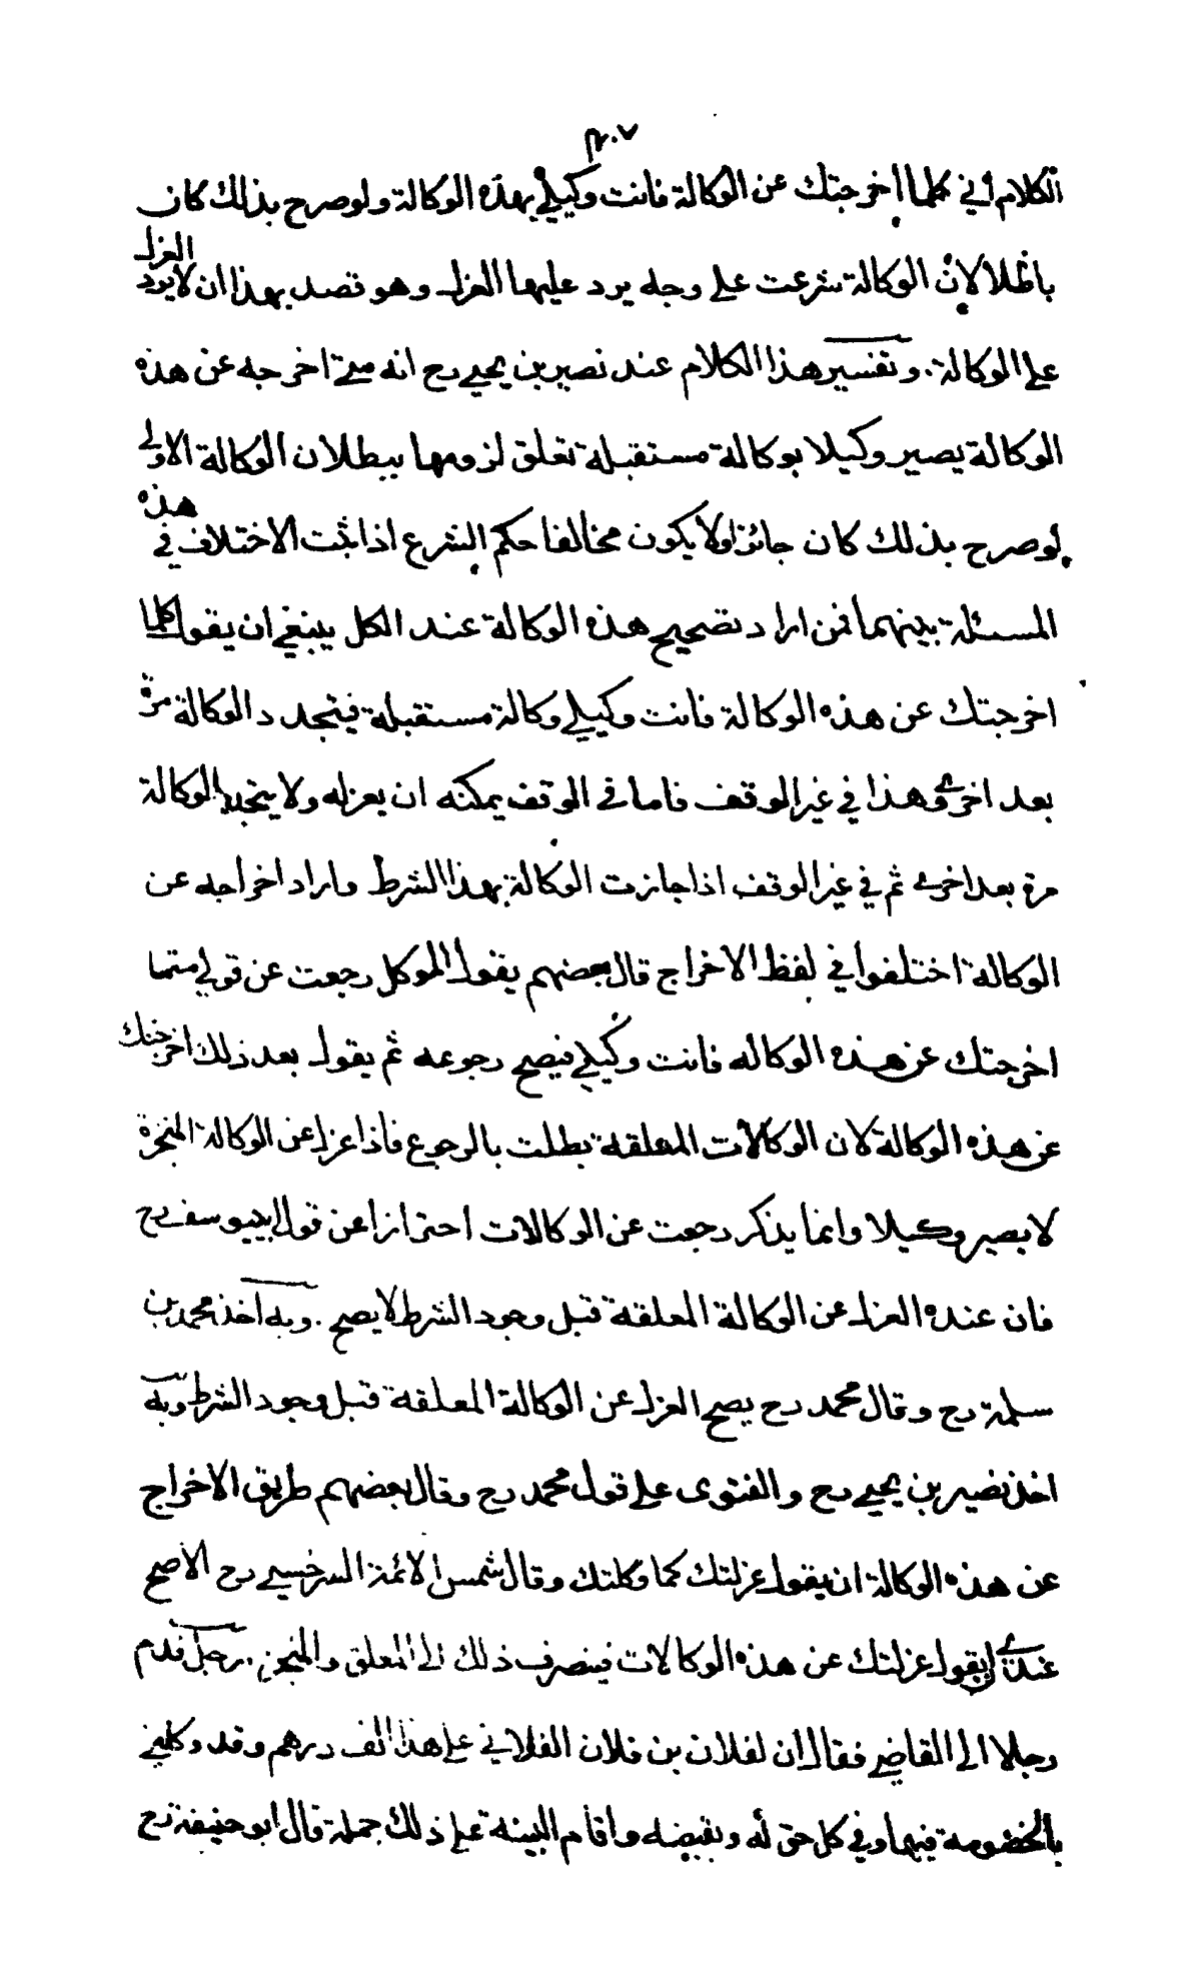 ٣٠٧
الكلام أني كلما اخرجتك عن الوكالة فانت وكيلي بهذه الوكالة ولو صرح بذلك كان
باطلا لان الوكالة شرعت على وجه يرد عليها العزل وهو قصد بهذا ان لا يرد العزل
على الوكالة. وتفسير هذا الكلام عند نصير بن يحيى رح انه متى اخرجه عن هذه
الوكالة يصير وكيلا بوكالة مستقبلة تعلق لزومها ببطلان الوكالة الاولى
لو صرح بذلك كان جائزا ولا يكون مخالفا حكم الشرع اذا ثبت الاختلاف في هذه
المسئلة بينهما فمن اراد تصحيح هذه الوكالة عند الكل ينبغي ان يقول كلما
اخرجتك عن هذه الوكالة فانت وكيلي وكالة مستقبلة فيتجدد الوكالة مرة
بعد اخرى وهذا في غير الوقف فاما في الوقف يمكنه ان يعزله ولا يتجدد الوكالة
مرة بعد اخرى ثم في غير الوقف اذا جازت الوكالة بهذا الشرط واراد اخراجه عن
الوكالة اختلفوا في لفظ الاخراج قال بعضهم يقول الموكل رجعت عن قولي متما
اخرجتك عن هذه الوكاله فانت وكيلي فيصح رجوعه ثم يقول بعد ذلك اخرجتك
عن هذه الوكالة لان الوكالات المعلقة بطلت بالرجوع فاذا عزل عن الوكالة المنجزة
لا يصير وكيلا وانما يذكر رجعت عن الوكالات احترازا عن قول ابييوسف رح
فان عنده العزل عن الوكالة المعلقة قبل وجود الشرط لا يصح. وبه اخذ محمد بن
سلمة رح وقال محمد رح يصح العزل عن الوكالة المعلقة قبل وجود الشرط وبه
اخذ نصير بن يحيى رح والفتوى على قول محمد رح وقال بعضهم طريق الاخراج
عن هذه الوكالة ان يقول عزلتك كما وكلتك وقال شمس الائمة السرخسي رح الاصح
عندي ان يقول عزلتك عن هذه الوكالات فينصرف ذلك الى المعلق والمنجز. رجل قدم
رجلا الى القاضي فقال ان لفلان بن فلان الفلاني على هذا الف درهم وقد وكلني
بالخصومة فيها وفي كل حق له وبقبضه واقام البينة على ذلك جملة قال ابو حنيفة رح